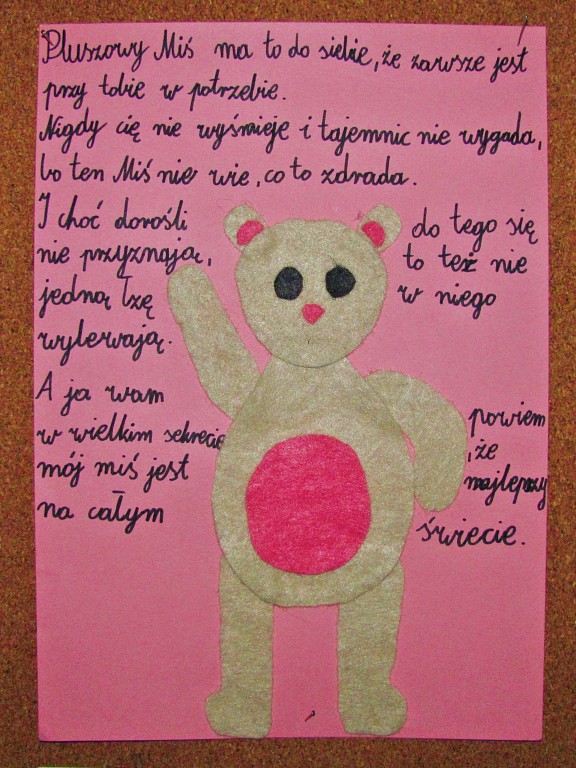 Pluszowy Miś ma to do siebie, że zawsze jest
przy tobie w potrzebie.
Nigdy cię nie wyśmieje i tajemnic nie wygada,
bo ten Miś nie wie, co to zdrada.
I choć dorośli do tego się
nie przyznają, to też nie
jedną łzę w niego
wylewają.
A ja wam powiem
w wielkim sekrecie, że
mój miś jest najlepszy
na całym świecie.